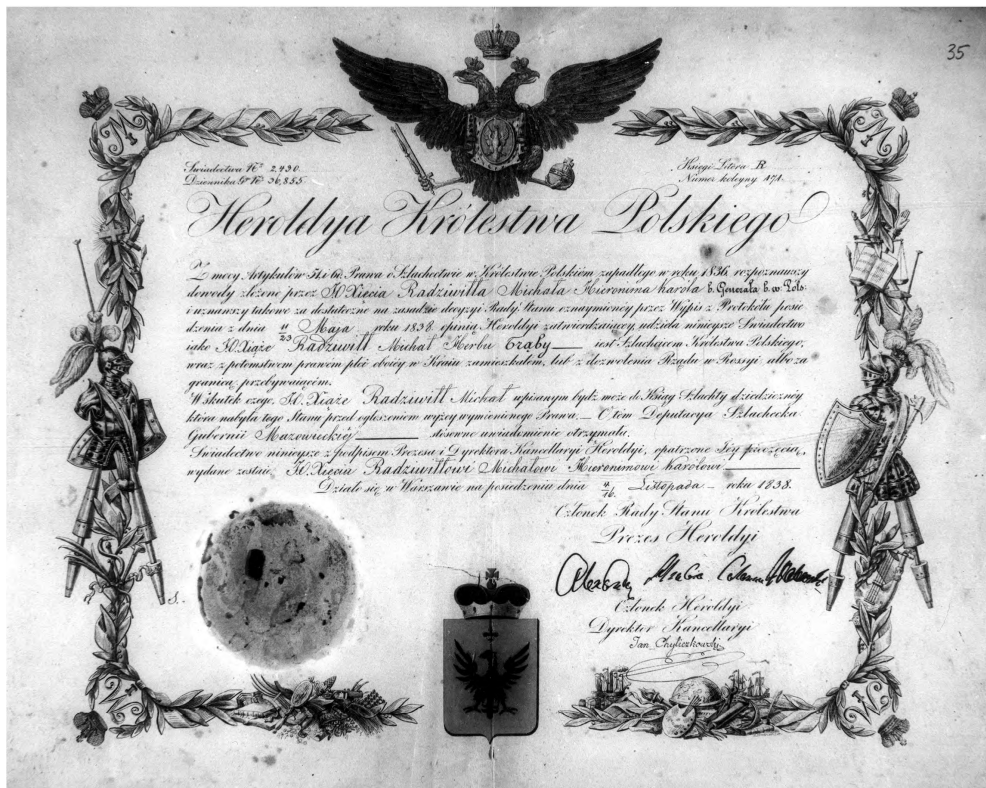 35
Świadectwa No 2,430.
Dziennika Gło No 36,855.
Księgi Litera R
Numer kolejny 171.
Heroldya Królestwa Polskiego
Z mocy Artykułów 51 i 60. Prawa o Szlachectwie w Królestwie Polskiem zapadłego w roku 1836, rozpoznawszy
dowody złożone przez JO Xięcia Radziwiłła Michała Hieronima Karola b. Generała b. w. Pols:
i uznawszy takowe za dostateczne na zasadzie decyzyi Rady Stanu oznaymioney przez Wypis z Protokółu posie
dzenia z dnia 11/23 Maja roku 1838. opinią Heroldyi zatwierdzaiącey, udziela ninieysze Świadectwo
iako JO. Xiąże Radziwiłł Michał Herbu Trąby iest Szlachcicem Królestwa Polskiego,
wraz z potomstwem prawem płci oboiéy w Kraiu zamieszkałem, lub z dozwolenia Rządu w Rossyi albo za
granicą przebywaiącém.
W skutek czego, JO. Xiąże Radziwiłł Michał wpisanym bydź może do Księgi Szlachty dziedziczney
która nabyła tego Stanu przed ogłoszeniem wyżey wymienionego Prawa. O tém Deputacya Szlachecka
Gubernii Mazowieckiéy stosowne uwiadomienie otrzymała.
Świadectwo ninieysze z podpisem Prezesa i Dyrektora Kancellaryi Heroldyi, opatrzone Jéy pieczęcią,
wydane zostaie JO. Xięciu Radziwiłłowi Michałowi Hieronimowi Karolowi
Działo się w Warszawie na posiedzeniu dnia 4/16 Listopada roku 1838.
Członek Rady Stanu Królestwa
Prezes Heroldyi
Członek Heroldyi
Dyrektor Kancellaryi
Jan Chyliczkowski